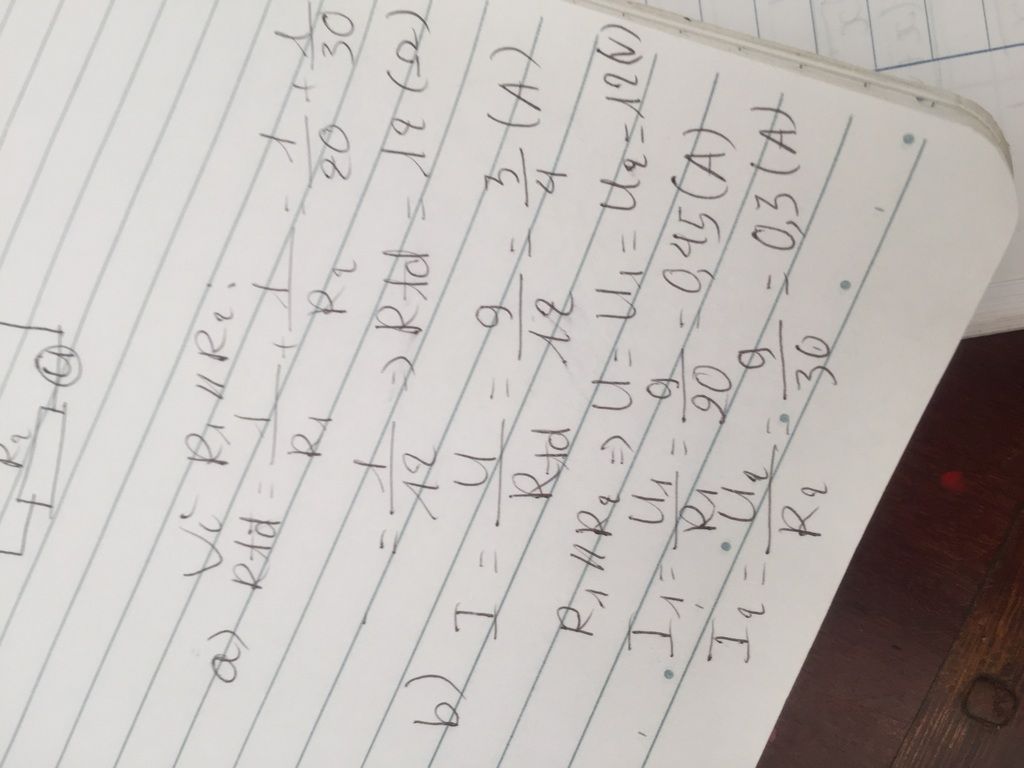 R₂
Vì R₁ // R₂:
a) Rtđ = 1/R₁ + 1/R₂ = 1/20 + 1/30
= 1/12 => Rtđ = 12 (Ω)
b) I = U/Rtđ = 9/12 = 3/4 (A)
R₁ // R₂ => U = U₁ = U₂ = 12 (V)
I₁ = U₁/R₁ = 9/20 = 0,45 (A)
I₂ = U₂/R₂ = 9/30 = 0,3 (A)